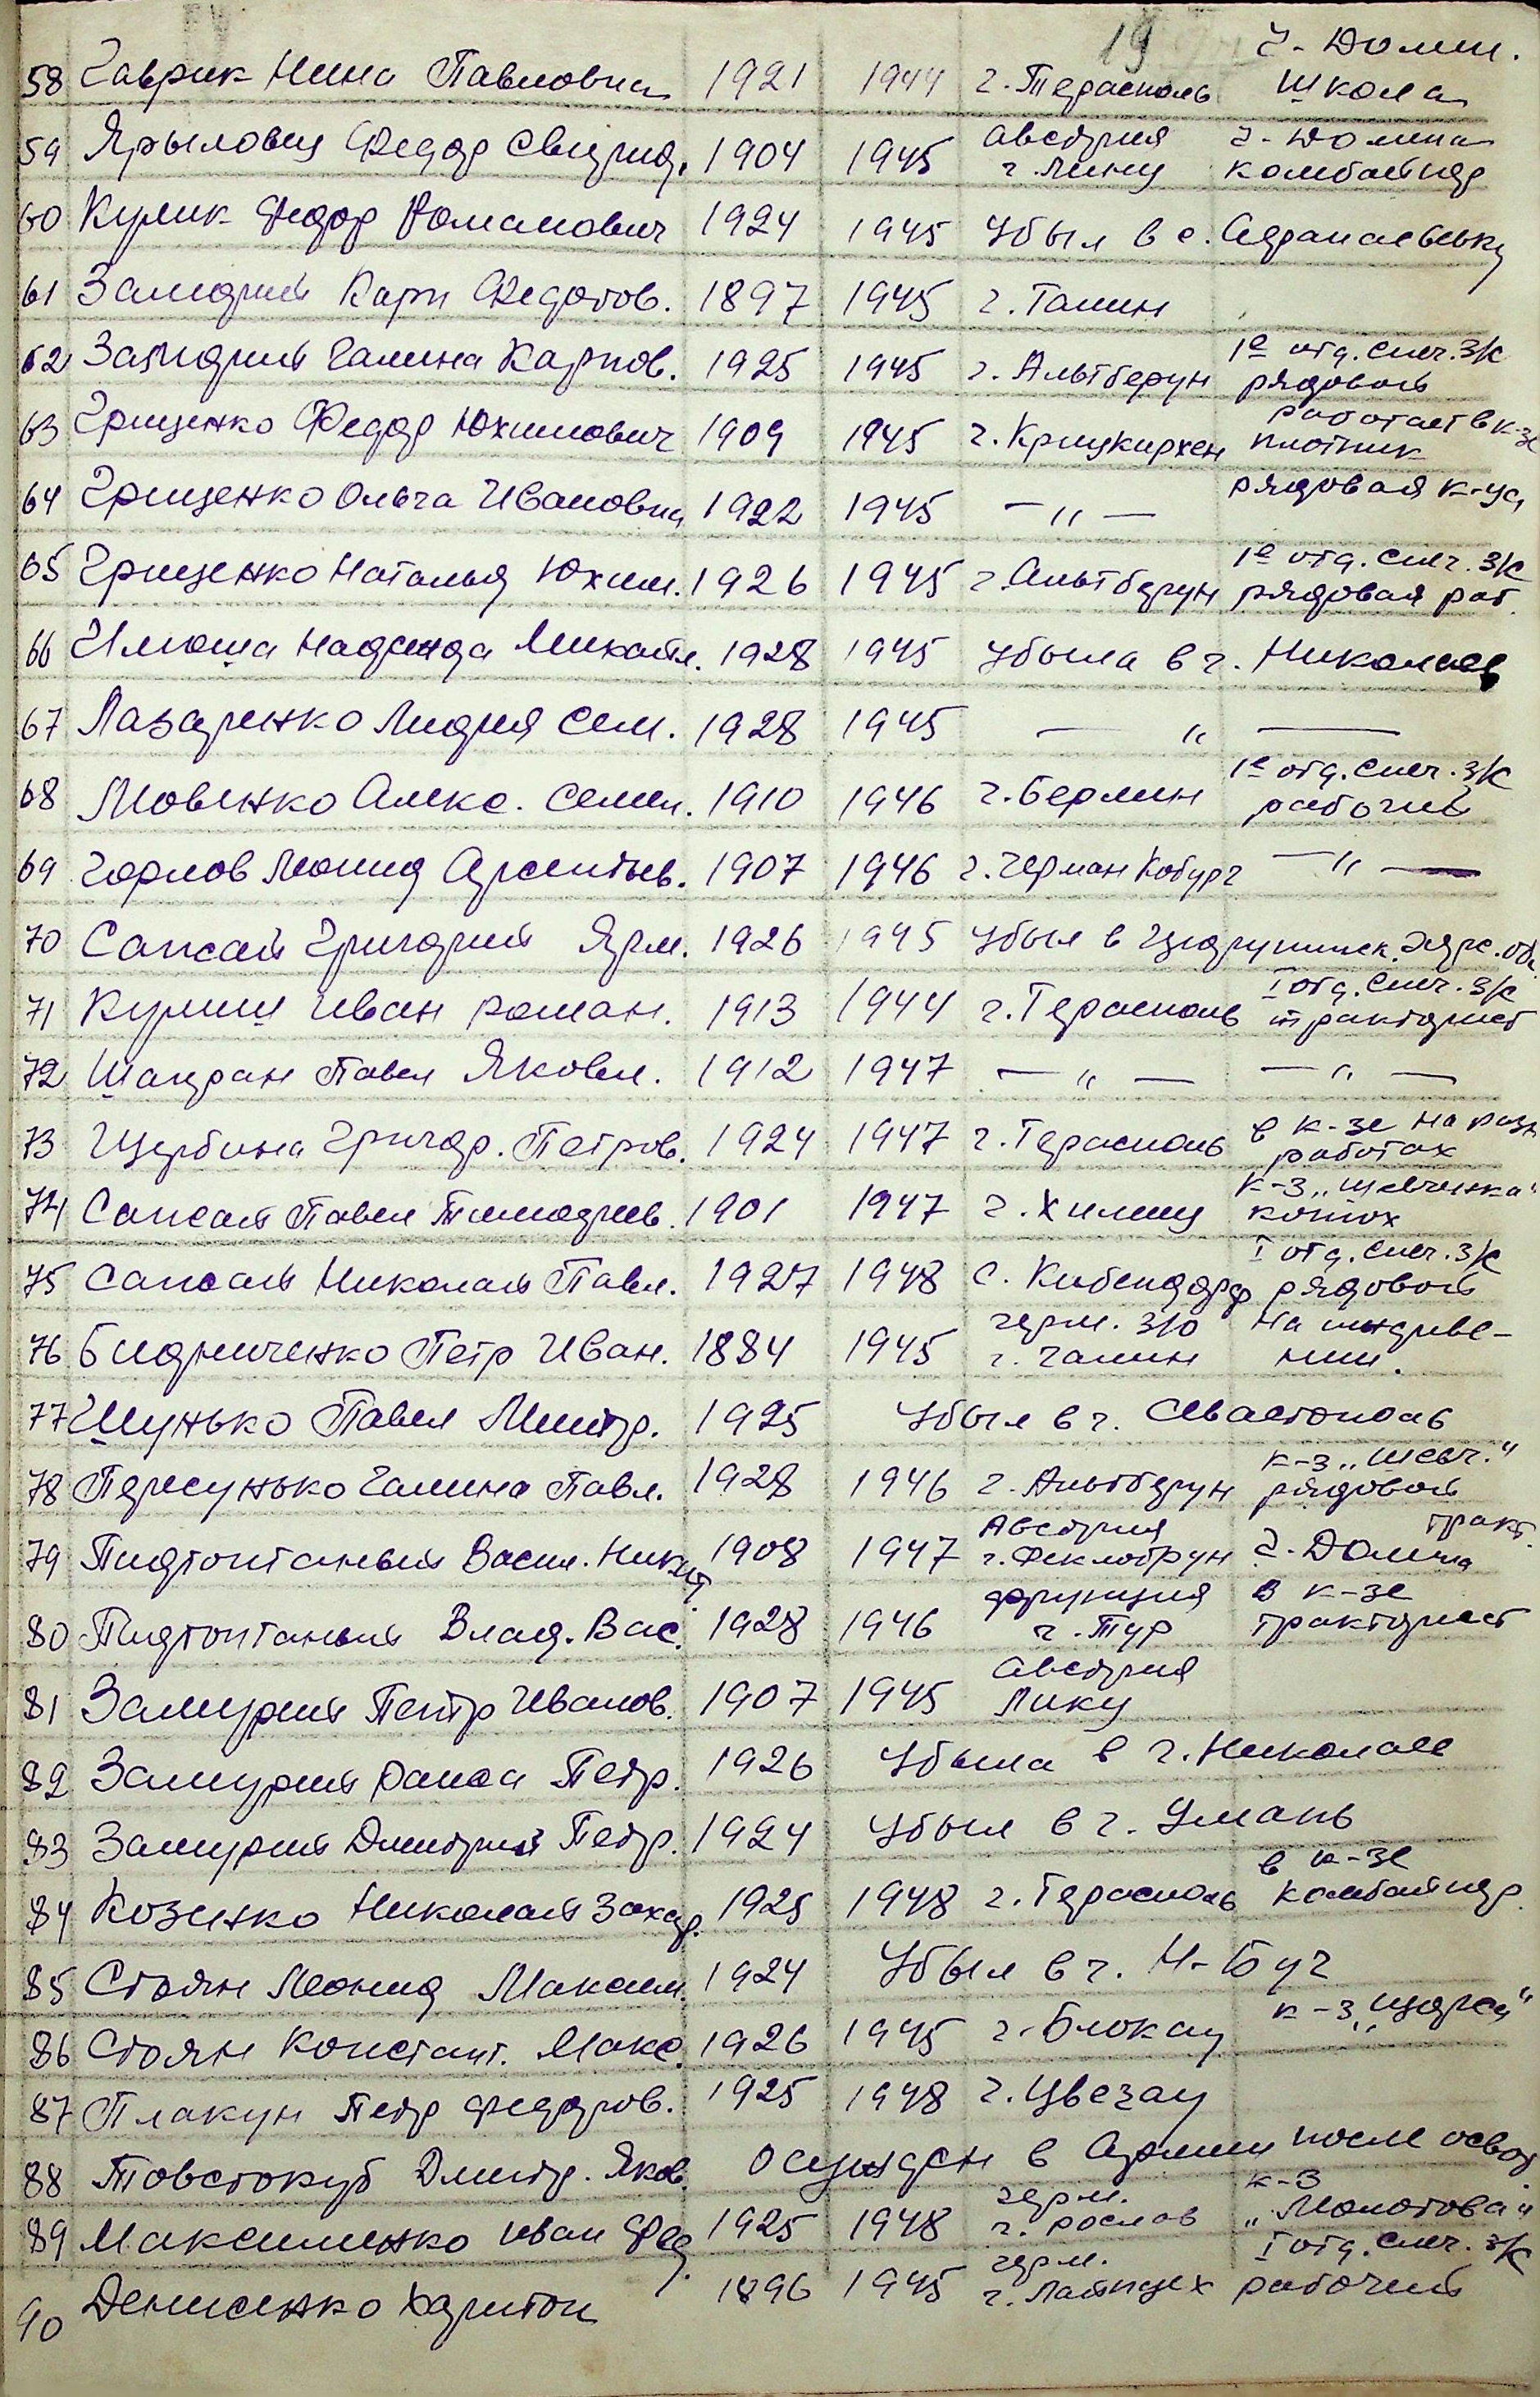 19
58 Гаврик Нина Павловна 1921 1944 г. Терасполь Г-Долин. школа
59 Ярыловец Федор Свирид. 1904 1945 Австрия г. Линц Г-Долина комбайнер
60 Кулик Федор Романович 1924 1945 Убыл в с.
61 Замидрий Карп Федотов. 1897 1945 г. Галин
62 Замидрий Галина Карпов. 1925 1945 г. Альтберун 1е отд. снег. з/с рядовой
63 Грищенко Федор Юхимович 1909 1945 г. Крицкирхен работает в к-зе плотник
64 Грищенко Ольга Ивановна 1922 1945 — „ — рядовая к-ца
65 Грищенко Наталья Юхим. 1926 1945 г. Альтберун 1е отд. снег. з/с рядовая раб.
66 Илюша Надежда Михайл. 1928 1945 Убыла в г. Николаев
67 Лазаренко Лидия Сем. 1928 1945 — „ —
68 Мовенко Алекс. Семен. 1910 1946 г. Берлин 1е отд. снег. з/с рабочий
69 Горлов Леонид Арсентьев. 1907 1946 г. Герман Кобург — „ —
70 Сапсай Григорий Ярм. 1926 1945 Убыл в Цюрупинск. Херс. обл.
71 Кулиш Иван Роман. 1913 1944 г. Терасполь I отд. снег. з/с тракторист
72 Шапран Павел Яковл. 1912 1947 — „ — — „ —
73 Щербина Григор. Петров. 1924 1947 г. Терасполь в к-зе на разн работах
74 Сапсай Павел Тимофеев. 1901 1947 г. Хилиц к-з „Шевченка" конюх
75 Сапсай Николай Павл. 1927 1948 с. Кибендорф I отд. снег. з/с рядовой
76 Бидниченко Петр Иван. 1884 1945 герм. г. Галин на иждиве- нии.
77 Шунько Павел Дмитр. 1925 Убыл в г. Севастополь
78 Пересунько Галина Павл. 1928 1946 г. Альтберун к-з „Шевч." рядовой
79 Пидтоптаный Васил. Никит 1908 1947 Австрия г. Феклабрун тракт. Г-Долина
80 Пидтоптаный Влад. Вас. 1928 1946 Франция г. Тур в к-зе тракторист
81 Замурий Петр Иванов. 1907 1945 Австрия Линц
82 Замурий Раиса Петр. 1926 Убыла в г. Николаев
83 Замурий Дмитрий Петр. 1924 Убыл в г. Умань
84 Козенко Николай Захар. 1925 1948 г. Терасполь в к-зе комбайнер.
85 Стоян Леонид Максим. 1924 Убыл в г. Н-Буг
86 Стоян Констант. Макс. 1926 1945 г. Блокау к-з „Щорса"
87 Плакун Петр Федоров. 1925 1948 г. Цвегау
88 Товстокуб Дмитр. Яков. Осужден в Армии после освоб.
89 Максименко Иван Фед. 1925 1948 герм. г. Рослав к-з „Молотова"
90 Денисенко Харитон 1896 1945 герм. г. Лайпцех I отд. снег. з/с рабочий